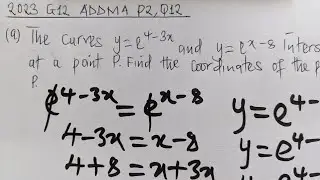 2023 G12 ADDMA P2, Q12
(9) The curves y=e^4-3x and y=e^x-8 Inters
at a point P. Find the coordinates of the p
P.
e^4-3x = e^x-8
4-3x = x-8
4+8 = x+3x
y=e^4-
y=e^4-
y=e^4-